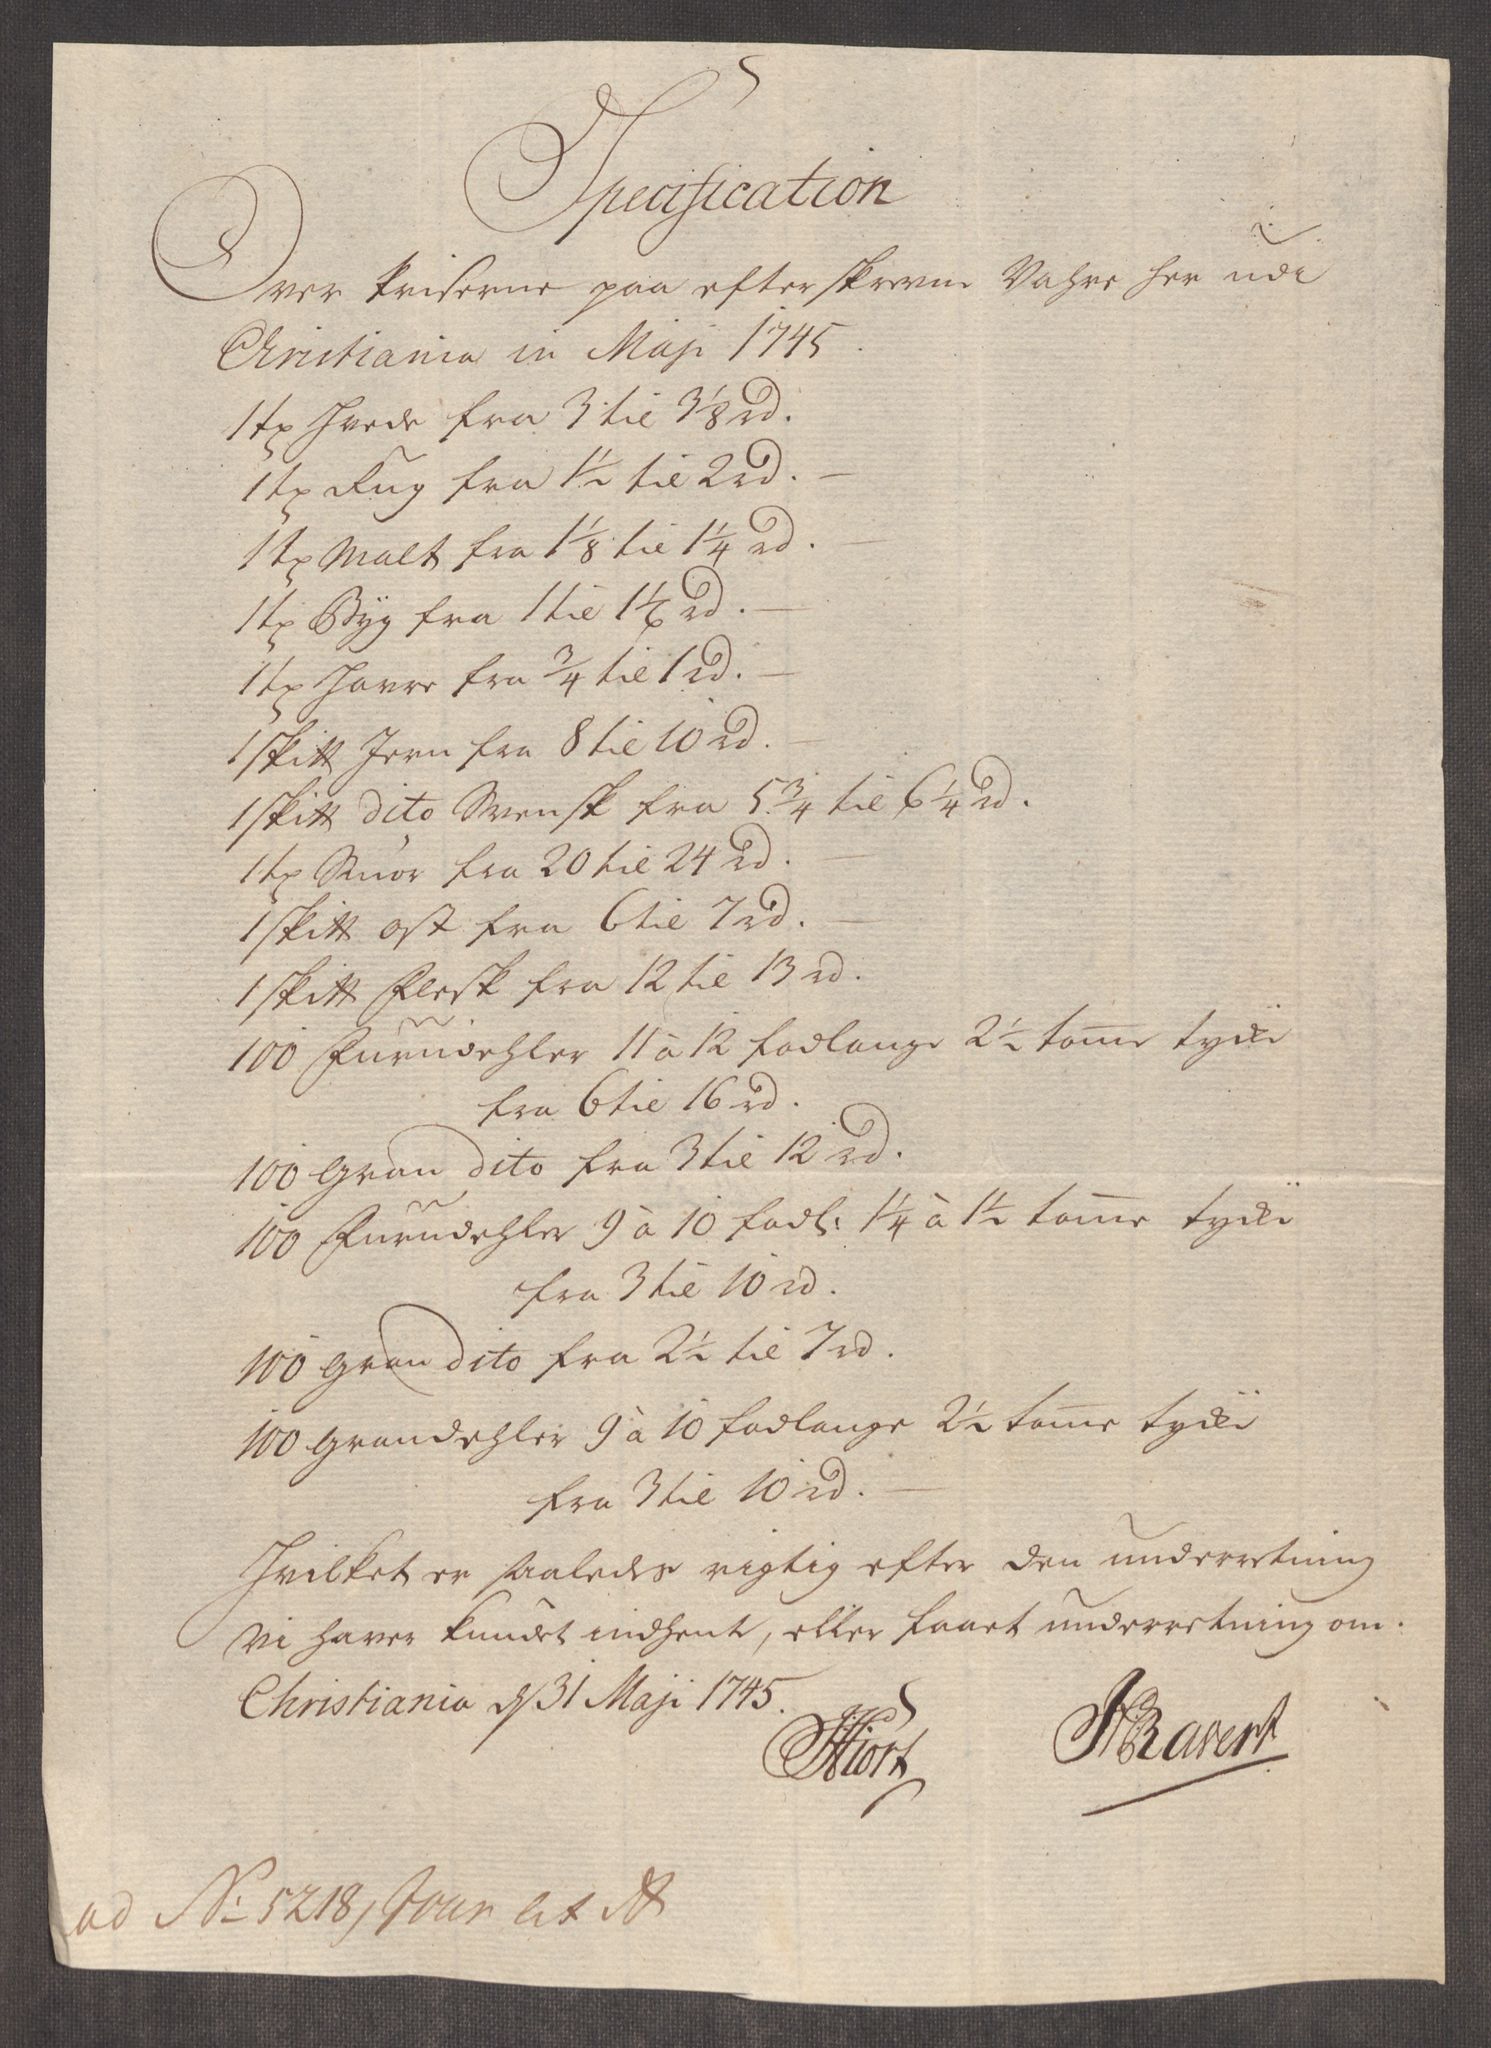 Specification
Over Priserne paa efterskrevne Vahre her udi
Christiania in Maji 1745.
1 tø Hvede fra 3 til 3 1/8 rd.
1 tø Rug fra 1 1/2 til 2 rd. —
1 tø Malt fra 1 1/8 til 1 1/4 rd. —
1 tø Byg fra 1 til 1 1/6 rd. —
1 tø Havre fra 3/4 til 1 rd. —
1 skitt Jern fra 8 til 10 rd. —
1 skitt dito Svensk fra 5 3/4 til 6 1/4 rd.
1 tø Smør fra 20 til 24 rd. —
1 skitt ost fra 6 til 7 rd. —
1 skitt Flesk fra 12 til 13 rd.
100 Furudehler 11 à 12 fodlange 2 1/2 tome tyche
fra 6 til 16 rd.
100 Gran dito fra 3 til 12 rd.
100 Furudehler 9 à 10 fodl: 1 1/4 à 1 1/2 tome tyche
fra 3 til 10 rd.
100 gran dito fra 2 1/2 til 7 rd.
100 Grandehler 9 à 10 fodlange 2 1/2 tome tyche
fra 3 til 10 rd. —
Hvilket er saaledes rigtig efter den underretning
vi haver kundet indhente, eller faaet underretning om.
Christiania d 31 Maji 1745.
Hiort Ravert
ad No 5218, Jour Lit